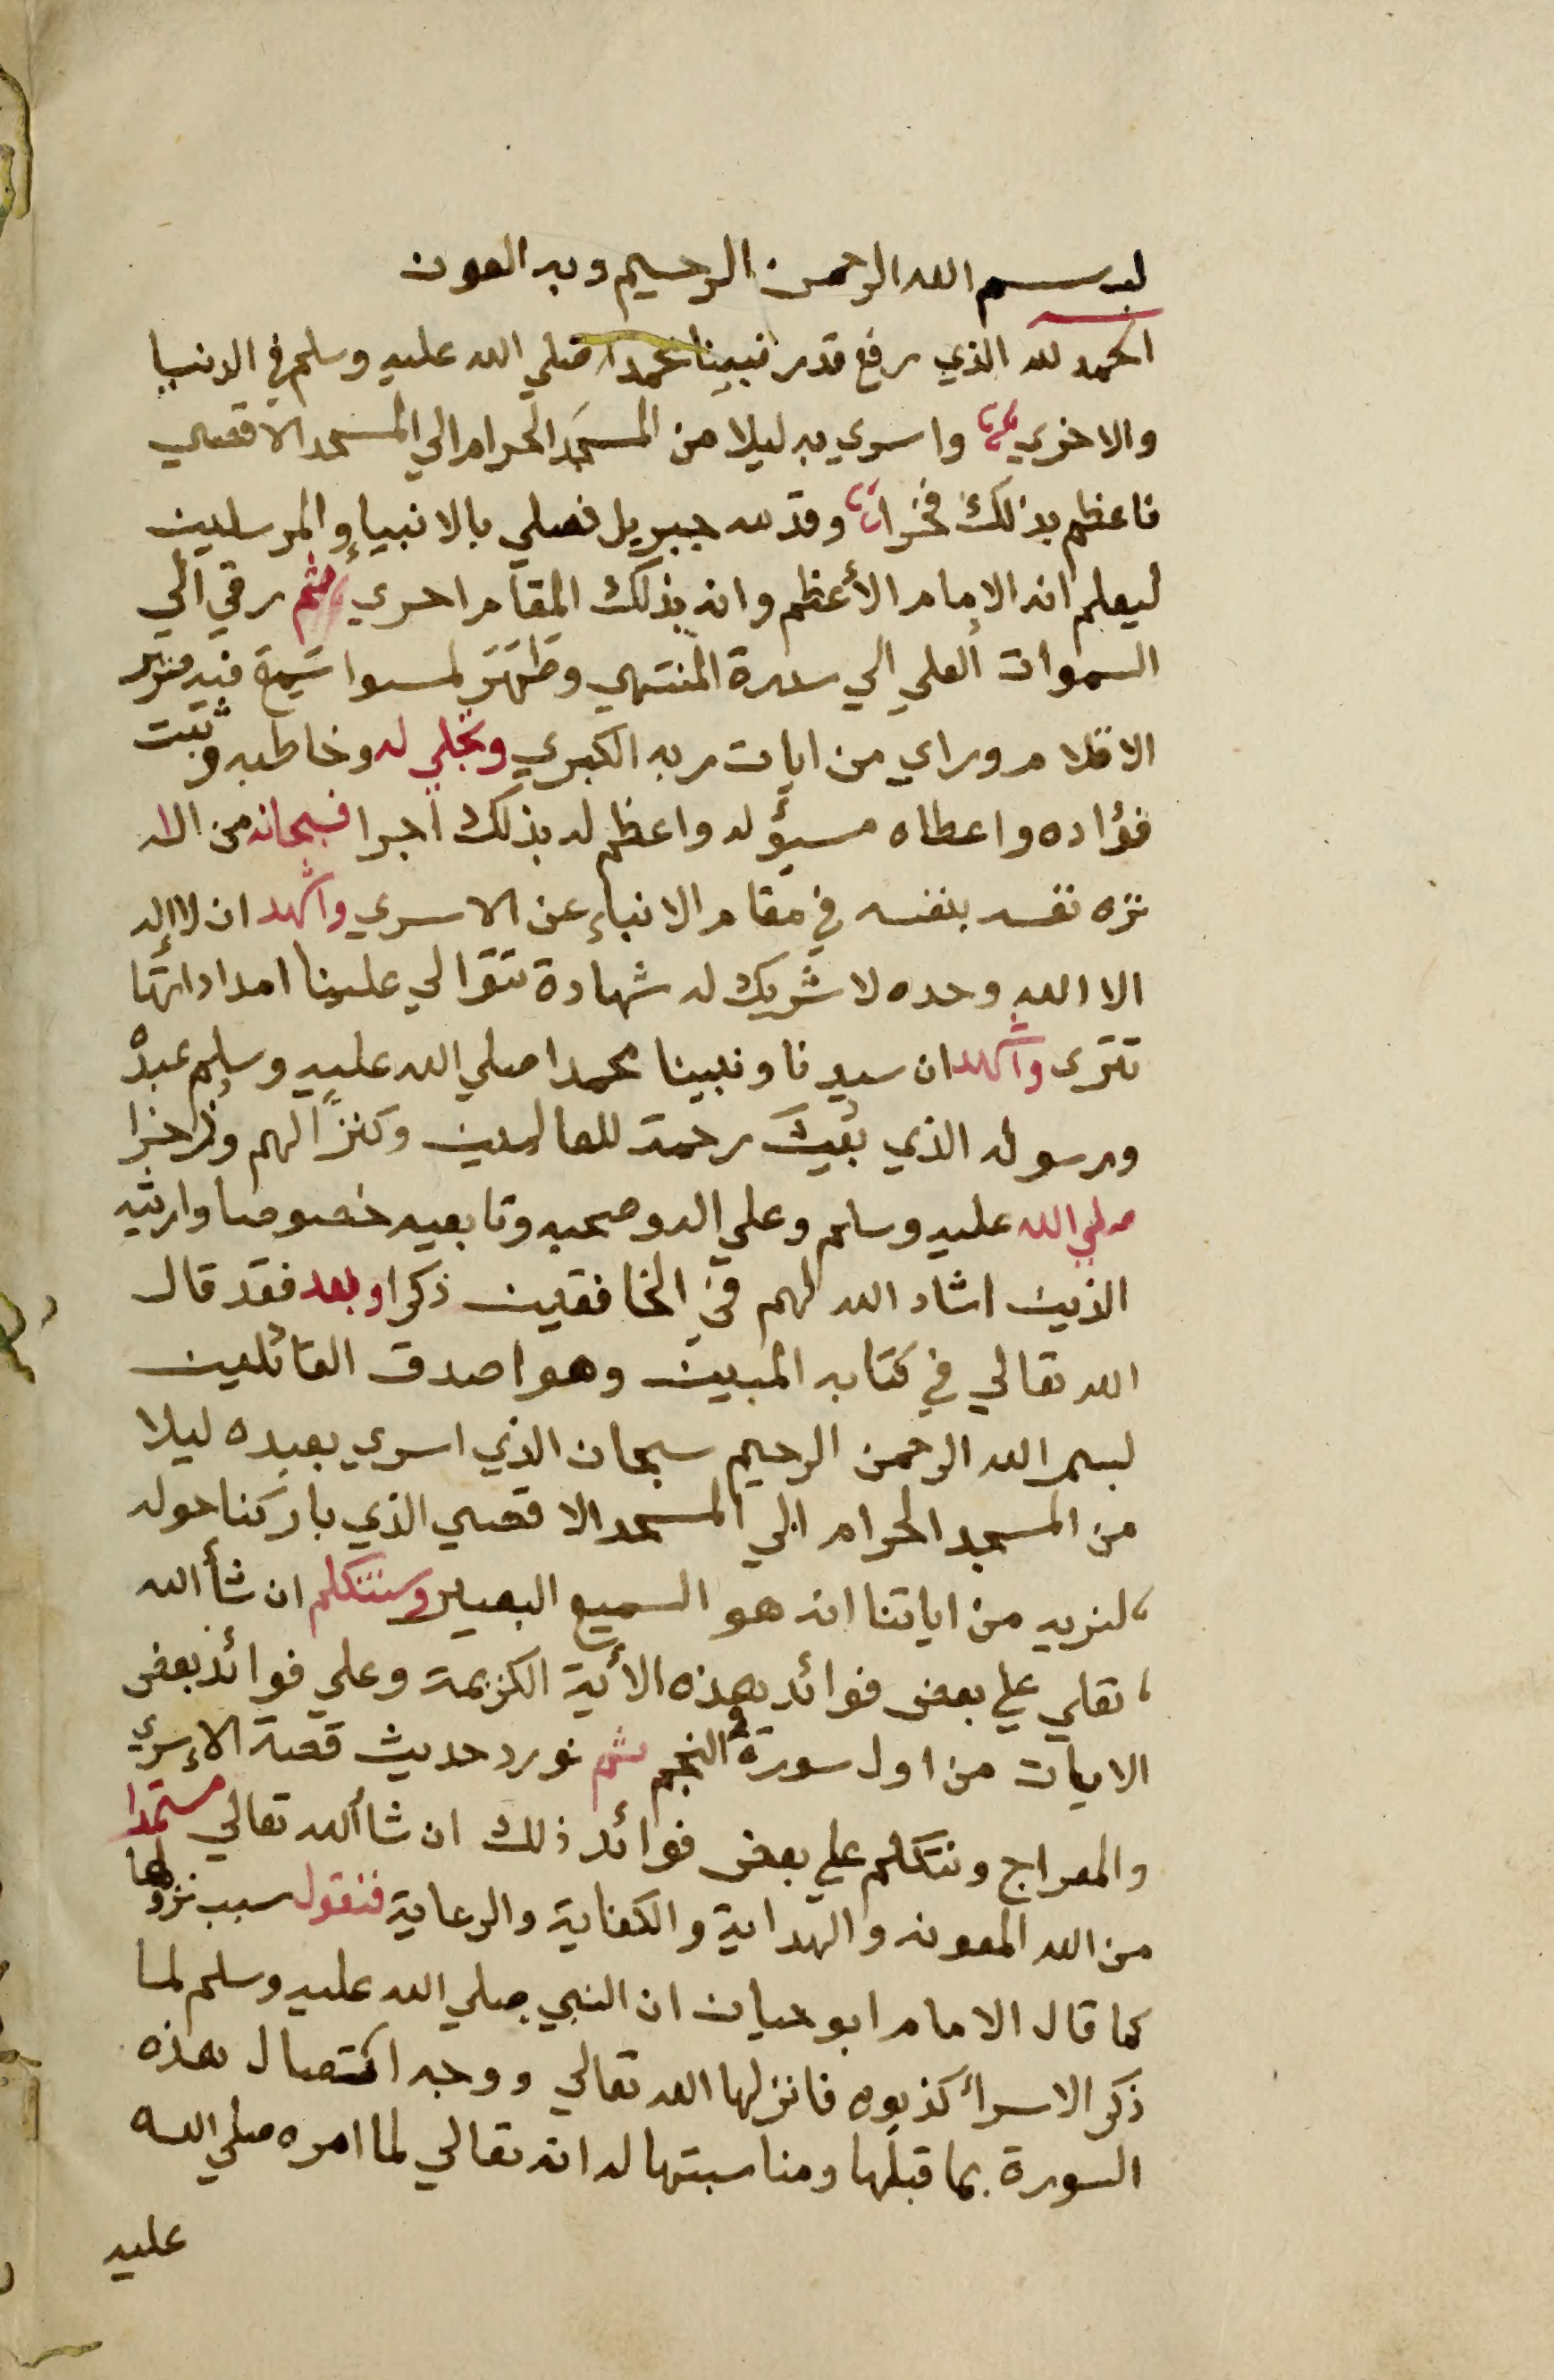 بسم الله الرحمن الرحيم وبه العون
الحمد لله الذي رفع قدر نبينا محمد صلي الله عليه وسلم في الدنيا
والاخري واسري به ليلا من المسجد الحرام الي المسجد الاقصي
فاعظم بذلك فخرا وقدمه جبريل فصلي بالانبياء والمرسلين
ليعلم انه الامام الأعظم وانه بذلك المقام احري ثم رقي الي
السموات العلي الي سدرة المنتهي وظهر لمستوا سمع فيه صرير
الاقلام وراي من ايات ربه الكبري وتجلي له وخاطبه وثبت
فؤاده واعطاه مسؤله واعظم له بذلك اجرا فسبحانه من اله
نزه نفسه بنفسه في مقام الانباء عن الاسري واشهد ان لا اله
الا الله وحده لا شريك له شهادة تتوالي علينا امداداتها
تترى واشهد ان سيدنا ونبينا محمدا صلي الله عليه وسلم عبده
ورسوله الذي بعث رحمة للعالمين وكنزاً لهم وذخرا
صلي الله عليه وسلم وعلي اله وصحبه وتابعيه خصوصا وارثيه
الذين اشاد الله لهم في الخافقين ذكرا وبعد فقد قال
الله تعالي في كتابه المبين وهو اصدق القائلين
بسم الله الرحمن الرحيم سبحان الذي اسري بعبده ليلا
من المسجد الحرام الي المسجد الاقصي الذي باركنا حوله
لنريه من اياتنا انه هو السميع البصير وسنتكلم ان شأ الله
تعلي علي بعض فوائد هذه الأية الكريمة وعلي فوائد بعض
الايات من اول سورة والنجم ثم نورد حديث قصة الإسري
والمعراج ونتكلم علي بعض فوائد ذلك ان شاألله تعالي مستمدا
من الله المعونه والهداية والكفاية والرعاية فنقول سبب نزولها
كما قال الامام ابو حيان ان النبي صلي الله عليه وسلم لما
ذكر الاسرأ كذبوه فانزلها الله تعالي ووجه اتصال هذه
السورة بما قبلها ومناسبتها له انه تعالي لما امره صلي الله
عليه